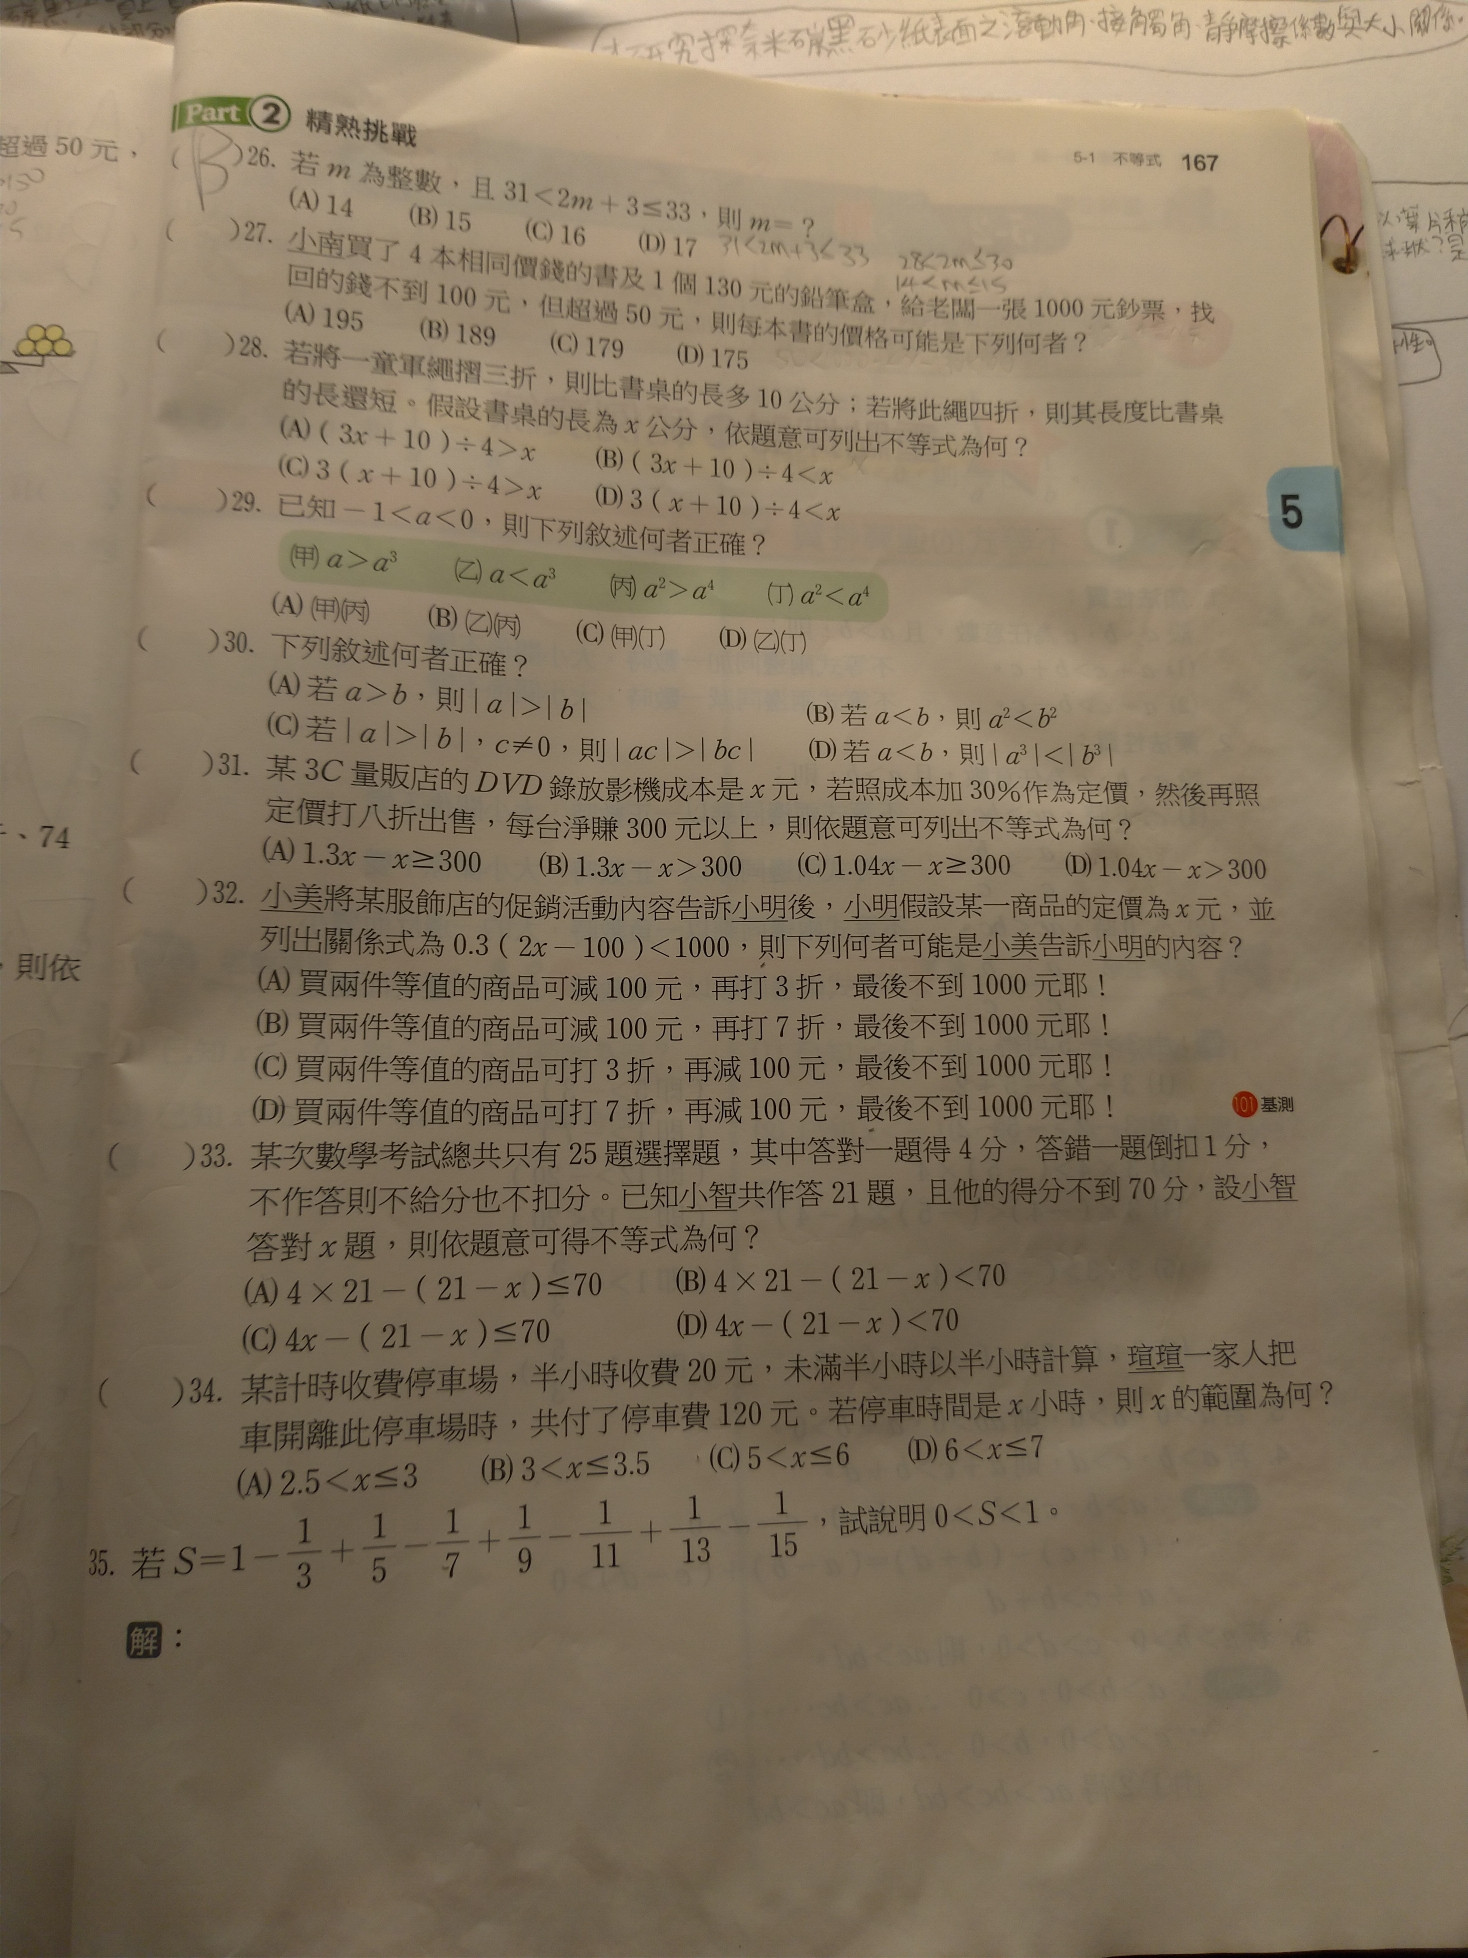 本研究探奈米碳黑砂紙表面之滾動角、接觸角、靜摩擦係數與大小關係。
超過 50 元,
Part 2 精熟挑戰
5-1 不等式 167
( B )26. 若 m 為整數,且 31<2m+3≤33,則 m=?
(A) 14 (B) 15 (C) 16 (D) 17
31<2m+3≤33 28<2m≤30
14<m≤15
( )27. 小南買了 4 本相同價錢的書及 1 個 130 元的鉛筆盒,給老闆一張 1000 元鈔票,找
回的錢不到 100 元,但超過 50 元,則每本書的價格可能是下列何者?
(A) 195 (B) 189 (C) 179 (D) 175
( )28. 若將一童軍繩摺三折,則比書桌的長多 10 公分;若將此繩四折,則其長度比書桌
的長還短。假設書桌的長為 x 公分,依題意可列出不等式為何?
(A) ( 3x+10 )÷4>x (B) ( 3x+10 )÷4<x
(C) 3 ( x+10 )÷4>x (D) 3 ( x+10 )÷4<x
5
( )29. 已知 −1<a<0,則下列敘述何者正確?
(甲) a>a³ (乙) a<a³ (丙) a²>a⁴ (丁) a²<a⁴
(A) (甲)(丙) (B) (乙)(丙) (C) (甲)(丁) (D) (乙)(丁)
( )30. 下列敘述何者正確?
(A) 若 a>b,則 | a |>| b | (B) 若 a<b,則 a²<b²
(C) 若 | a |>| b |,c≠0,則 | ac |>| bc | (D) 若 a<b,則 | a³ |<| b³ |
( )31. 某 3C 量販店的 DVD 錄放影機成本是 x 元,若照成本加 30%作為定價,然後再照
定價打八折出售,每台淨賺 300 元以上,則依題意可列出不等式為何?
(A) 1.3x−x≥300 (B) 1.3x−x>300 (C) 1.04x−x≥300 (D) 1.04x−x>300
、74
( )32. 小美將某服飾店的促銷活動內容告訴小明後,小明假設某一商品的定價為 x 元,並
列出關係式為 0.3 ( 2x−100 )<1000,則下列何者可能是小美告訴小明的內容?
,則依
(A) 買兩件等值的商品可減 100 元,再打 3 折,最後不到 1000 元耶!
(B) 買兩件等值的商品可減 100 元,再打 7 折,最後不到 1000 元耶!
(C) 買兩件等值的商品可打 3 折,再減 100 元,最後不到 1000 元耶!
(D) 買兩件等值的商品可打 7 折,再減 100 元,最後不到 1000 元耶!
101 基測
( )33. 某次數學考試總共只有 25 題選擇題,其中答對一題得 4 分,答錯一題倒扣 1 分,
不作答則不給分也不扣分。已知小智共作答 21 題,且他的得分不到 70 分,設小智
答對 x 題,則依題意可得不等式為何?
(A) 4×21−( 21−x )≤70 (B) 4×21−( 21−x )<70
(C) 4x−( 21−x )≤70 (D) 4x−( 21−x )<70
( )34. 某計時收費停車場,半小時收費 20 元,未滿半小時以半小時計算,瑄瑄一家人把
車開離此停車場時,共付了停車費 120 元。若停車時間是 x 小時,則 x 的範圍為何?
(A) 2.5<x≤3 (B) 3<x≤3.5 (C) 5<x≤6 (D) 6<x≤7
35. 若 S=1−1/3+1/5−1/7+1/9−1/11+1/13−1/15,試說明 0<S<1。
解: